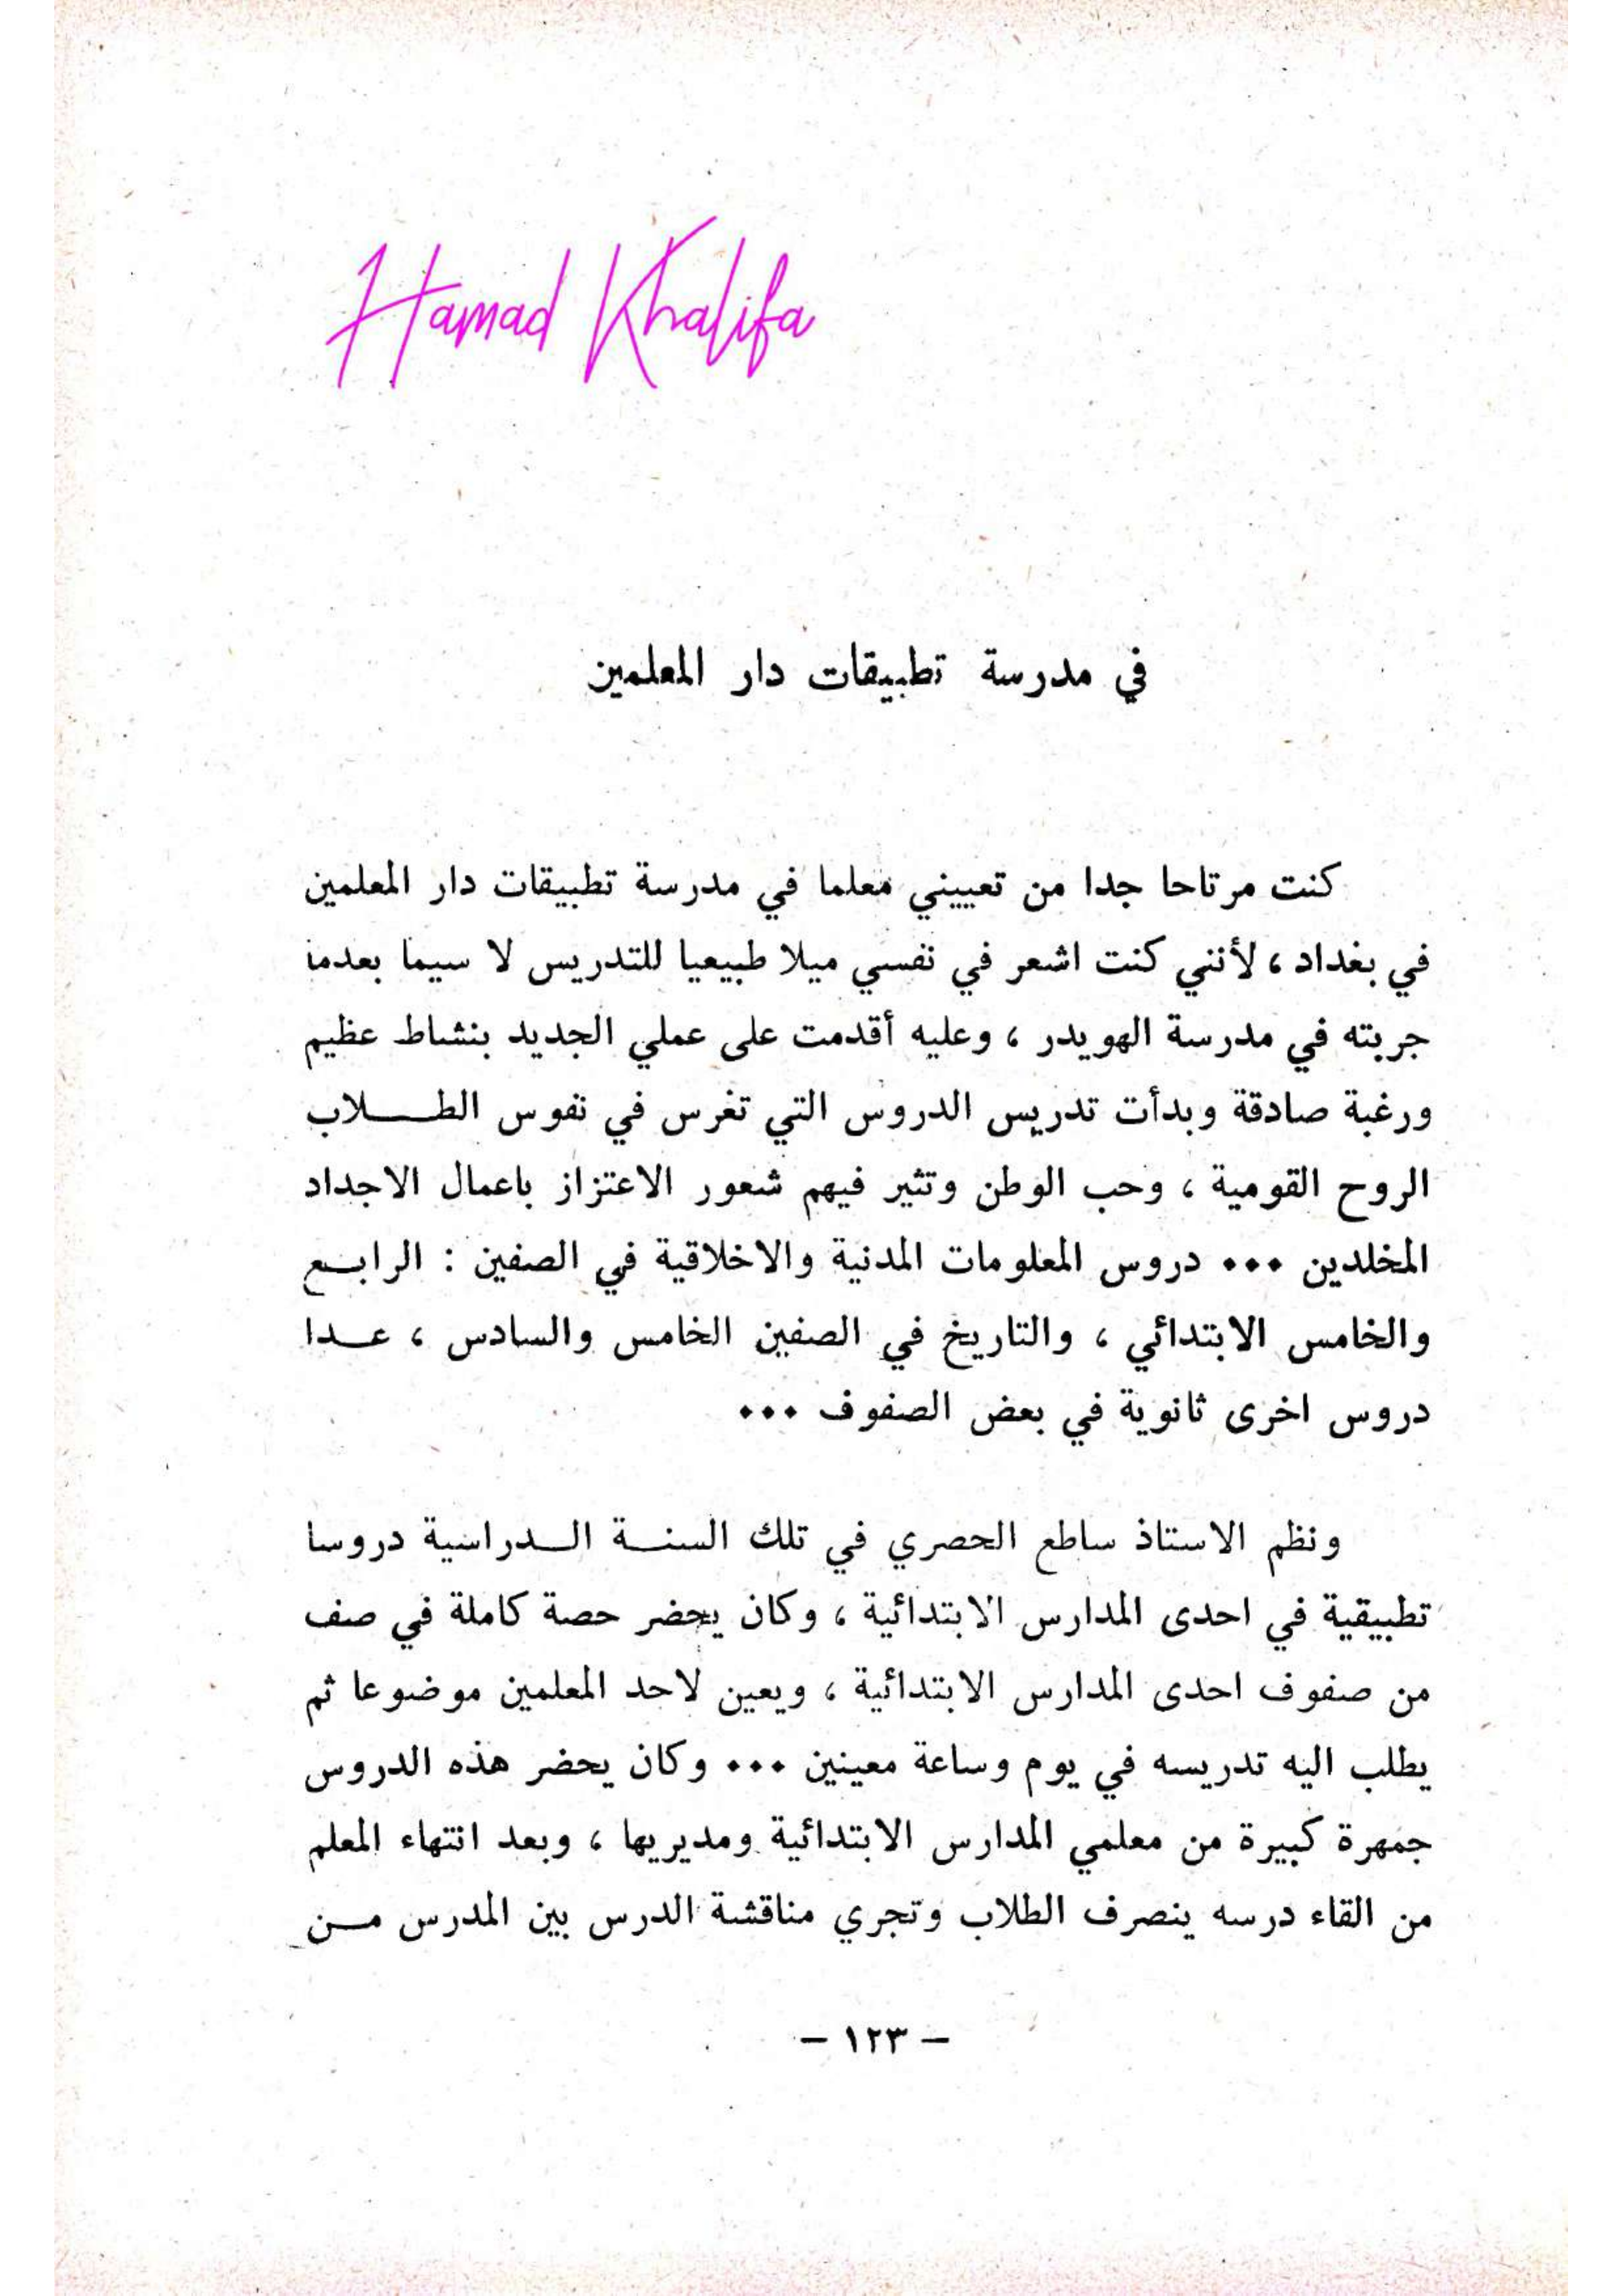 Hamad Khalifa
في مدرسة تطبيقات دار المعلمين
كنت مرتاحا جدا من تعييني معلما في مدرسة تطبيقات دار المعلمين
في بغداد ، لأنني كنت اشعر في نفسي ميلا طبيعيا للتدريس لا سيما بعدما
جربته في مدرسة الهويدر ، وعليه أقدمت على عملي الجديد بنشاط عظيم
ورغبة صادقة وبدأت تدريس الدروس التي تغرس في نفوس الطـــلاب
الروح القومية ، وحب الوطن وتثير فيهم شعور الاعتزاز باعمال الاجداد
المخلدين ... دروس المعلومات المدنية والاخلاقية في الصفين : الرابـع
والخامس الابتدائي ، والتاريخ في الصفين الخامس والسادس ، عـدا
دروس اخرى ثانوية في بعض الصفوف ...
ونظم الاستاذ ساطع الحصري في تلك السنـة الـدراسية دروسا
تطبيقية في احدى المدارس الابتدائية ، وكان يحضر حصة كاملة في صف
من صفوف احدى المدارس الابتدائية ، ويعين لاحد المعلمين موضوعا ثم
يطلب اليه تدريسه في يوم وساعة معينين ... وكان يحضر هذه الدروس
جمهرة كبيرة من معلمي المدارس الابتدائية ومديريها ، وبعد انتهاء المعلم
من القاء درسه ينصرف الطلاب وتجري مناقشة الدرس بين المدرس مـن
– ١٢٣ –